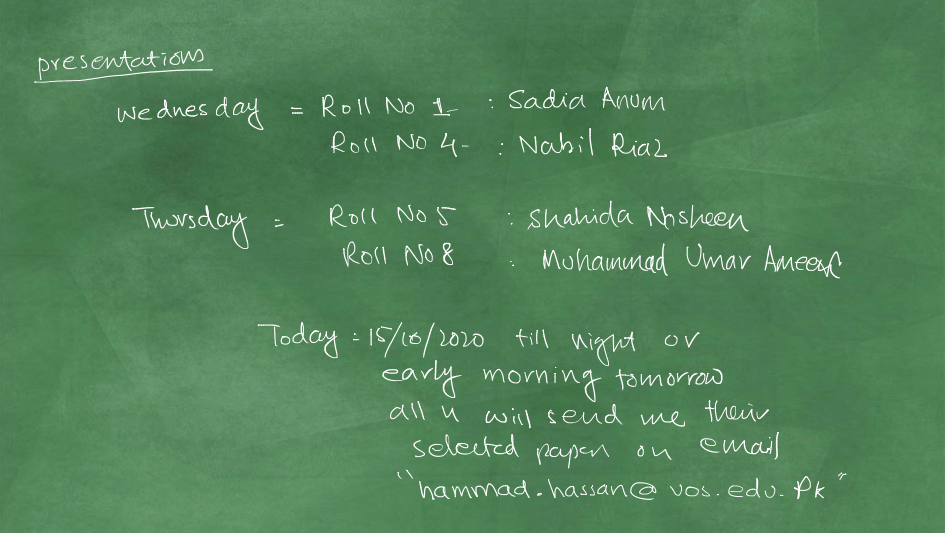 presentations
Wednesday = Roll No 1 : Sadia Anum
Roll No 4 - : Nabil Riaz
Thursday = Roll No 5 : Shahida Nosheen
Roll No 8 : Muhammad Umar Ameer
Today = 15/10/2020 till night or
early morning tomorrow
all u will send me their
selected paper on email
"hammad.hassan@uos.edu.Pk"